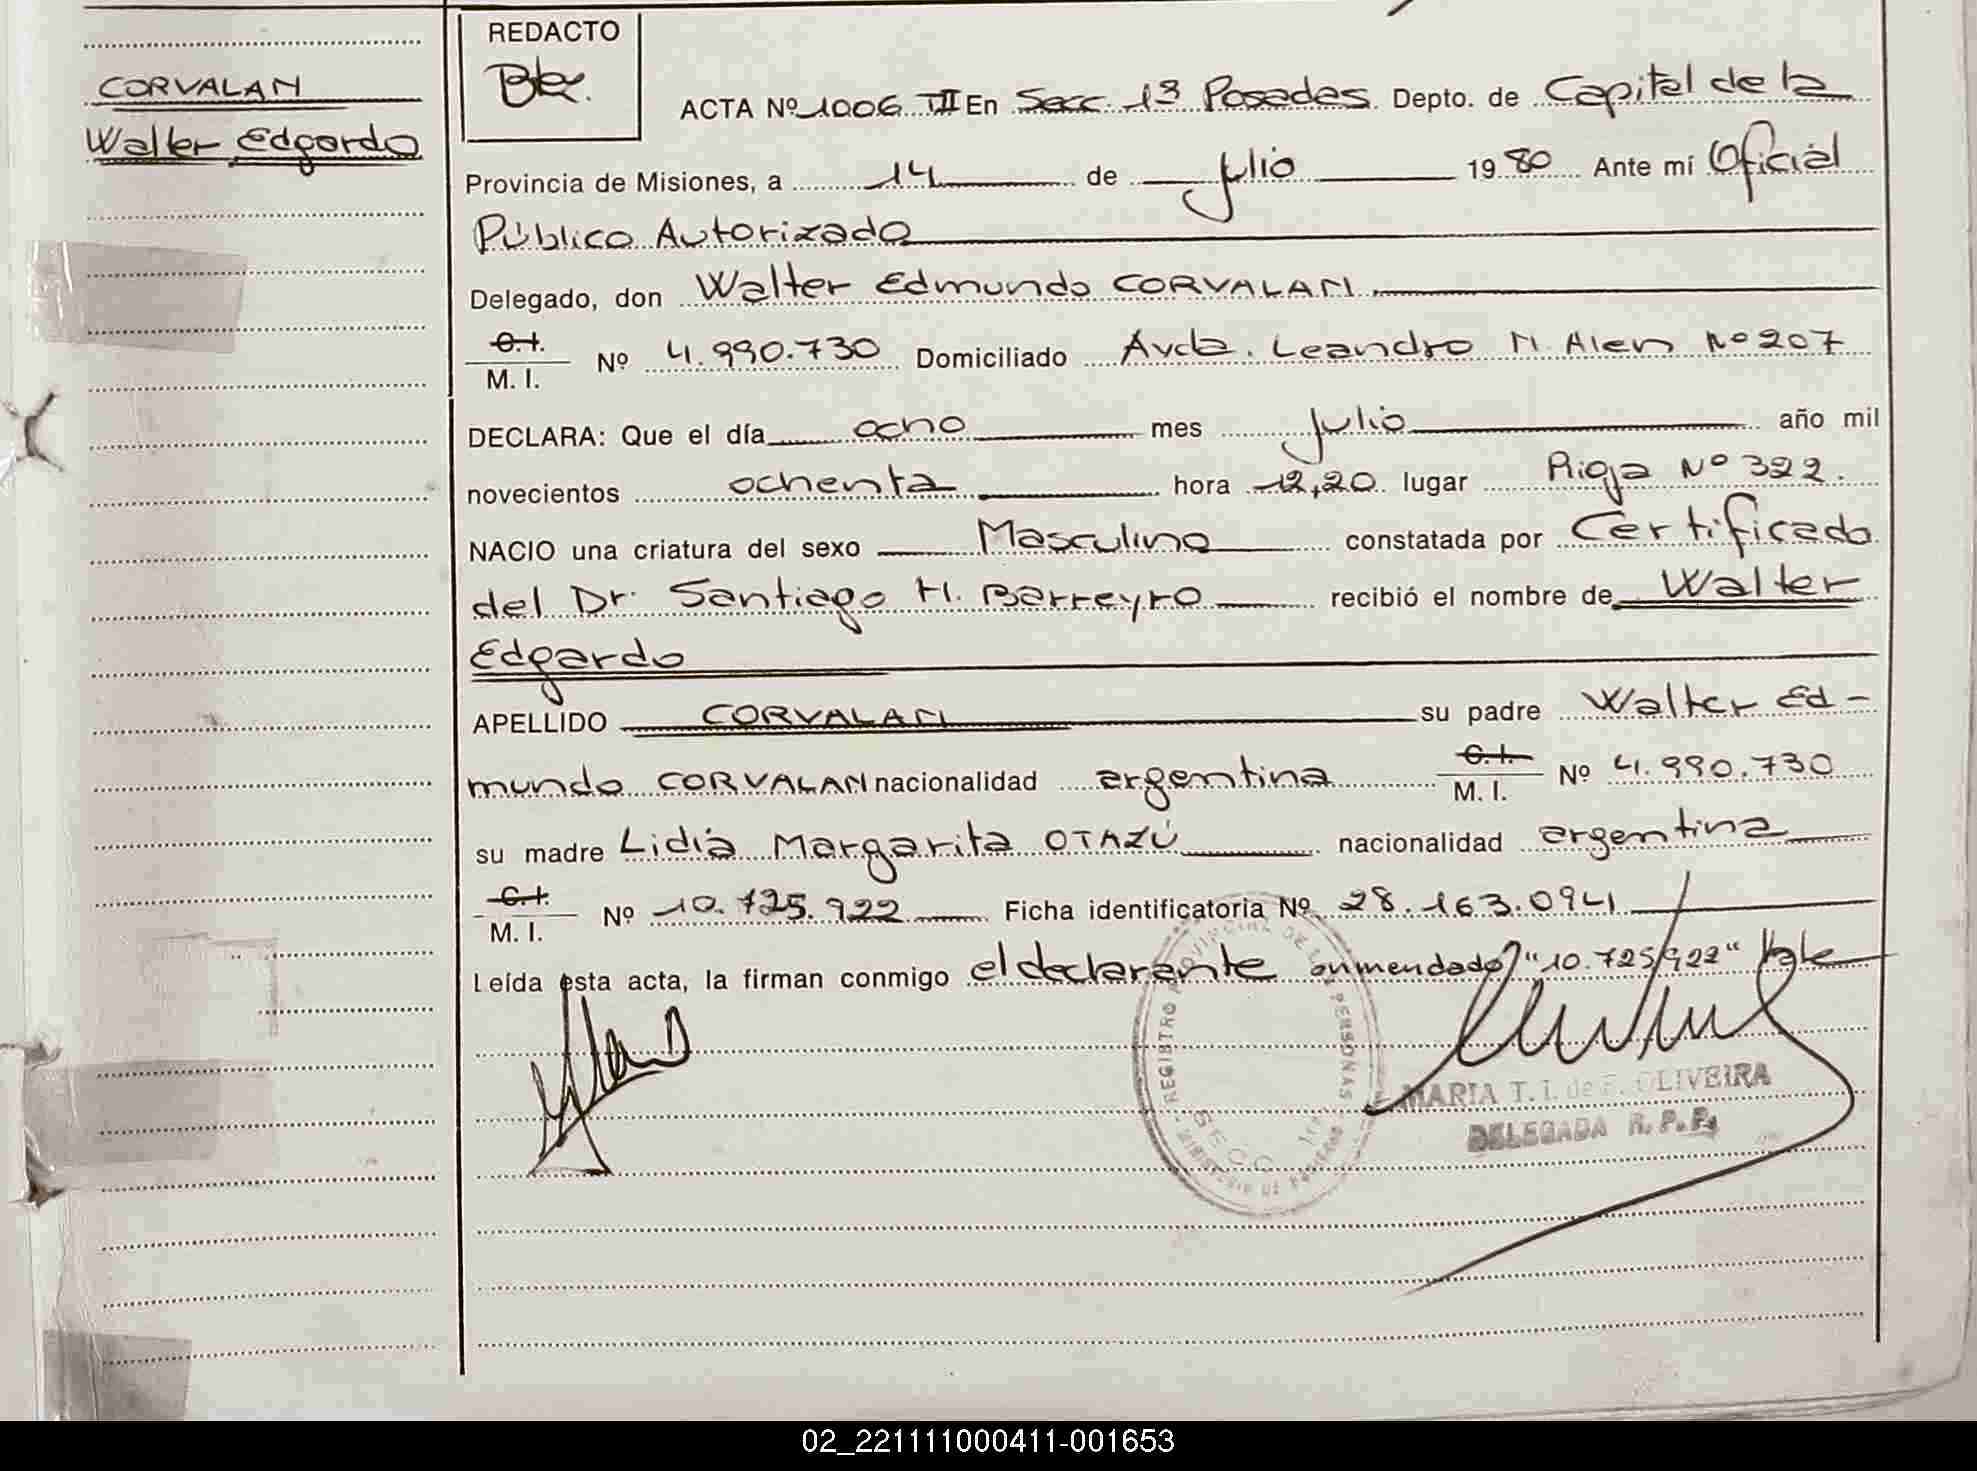 CORVALAN
Walter Edgardo
REDACTO
ACTA Nº 1006 TII En Secc. 1ª Posadas Depto. de Capital de la
Provincia de Misiones, a 14 de julio 1980 Ante mí Oficial
Público Autorizado
Delegado, don Walter Edmundo CORVALAN.
C.I.
M. I. Nº 4.990.730 Domiciliado Avda. Leandro N. Alen Nº 207
DECLARA: Que el día ocho mes julio año mil
novecientos ochenta hora 12,20 lugar Rioja Nº 322.
NACIO una criatura del sexo Masculino constatada por Certificado
del Dr. Santiago H. Barreyro recibió el nombre de Walter
Edgardo
APELLIDO CORVALAN su padre Walter Ed-
mundo CORVALAN nacionalidad argentina C.I. M. I. Nº 4.990.730
su madre Lidia Margarita OTAZÚ nacionalidad argentina
C.I.
M. I. Nº 10.725.922 Ficha identificatoria Nº 28.163.094
Leída esta acta, la firman conmigo el declarante enmendado "10.725.922" Vale
REGISTRO PROVINCIAL DE LAS PERSONAS
SECC
MARIA T. I. de F. OLIVEIRA
DELEGADA R. P. P.
02_221111000411-001653